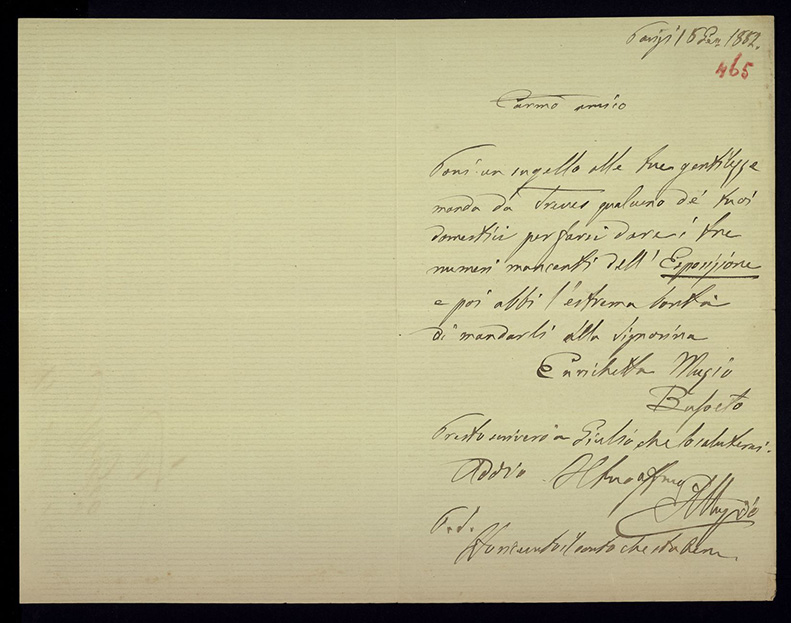 Parigi 15 Gen 1882.
465
Carmo amico
Poni un sugello alle tue gentilezze
manda da Treves qualcuno de' tuoi
domestici per farsi dare i tre
numeri mancanti dell' Esposizione
e poi abbi l'estrema bontà
di mandarli alla Signorina
Enrichetta Muzio
Busseto
Presto scriverò a Giulio che lo saluterai.
Addio Il tuo affmo
EMuzio
P.S.
Ho ricevuto il conto che sta bene.